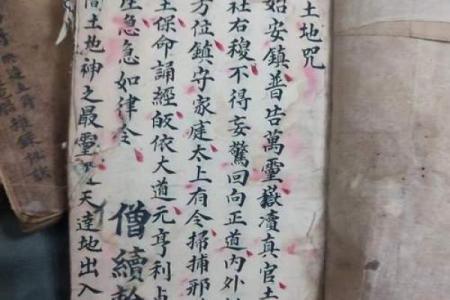 土地咒
始安鎮普告萬靈嶽瀆真官土
社右稷不得妄驚回向正道内外
方位鎮守家庭太上有令搜捕邪
王保命誦經皈依大道元亨利貞
座急急如律令 僧續
間土地神之最靈天達地出入